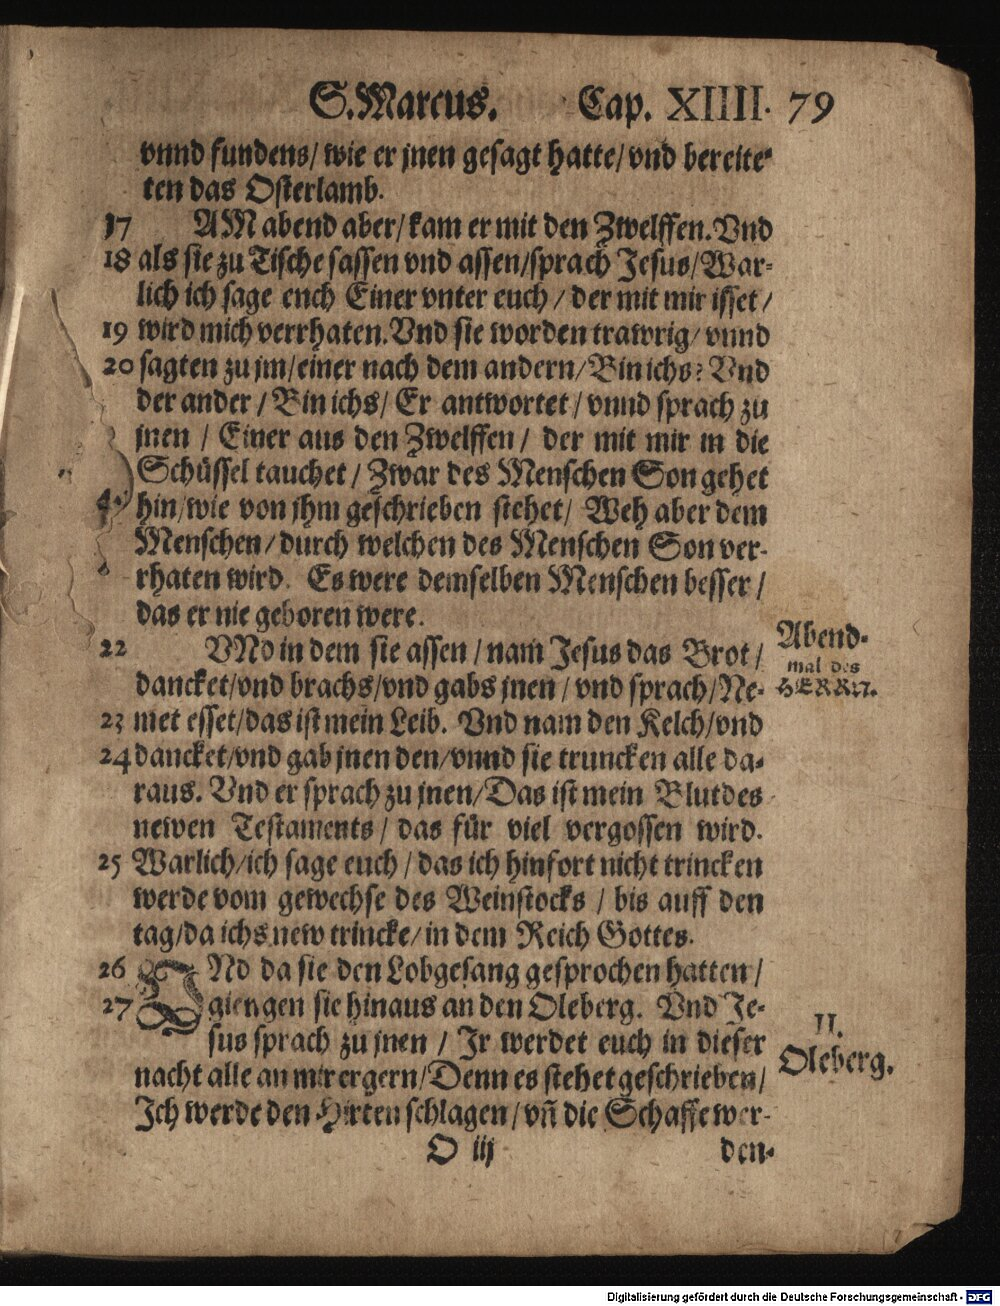 S. Marcus. Cap. XIIII. 79
vnnd fundens/ wie er jnen gesagt hatte/ vnd bereite-
ten das Osterlamb.
17 AM abend aber/ kam er mit den Zwelffen. Vnd
18 als sie zu Tische sassen vnd assen/ sprach Jesus/ War-
lich ich sage euch Einer vnter euch / der mit mir isset /
19 wird mich verrhaten. Vnd sie worden trawrig/ vnnd
20 sagten zu jm/ einer nach dem andern/ Bin ichs? Vnd
der ander / Bin ichs/ Er antwortet / vnnd sprach zu
jnen / Einer aus den Zwelffen / der mit mir in die
Schüssel tauchet / Zwar des Menschen Son gehet
hin/ wie von jhm geschrieben stehet/ Weh aber dem
Menschen / durch welchen des Menschen Son ver-
rhaten wird. Es were demselben Menschen besser /
das er nie geboren were.
22 VNd in dem sie assen / nam Jesus das Brot /
Abend-
mal des
HERRN.
dancket/ vnd brachs/ vnd gabs jnen / vnd sprach/ Ne-
23 met esset/ das ist mein Leib. Vnd nam den Kelch/ vnd
24 dancket/ vnd gab jnen den/ vnnd sie truncken alle da-
raus. Vnd er sprach zu jnen/ Das ist mein Blut des
newen Testaments / das für viel vergossen wird.
25 Warlich/ ich sage euch / das ich hinfort nicht trincken
werde vom gewechse des Weinstocks / bis auff den
tag/ da ichs new trincke/ in dem Reich Gottes.
26 VNd da sie den Lobgesang gesprochen hatten /
27 giengen sie hinaus an den Oleberg. Vnd Je-
II.
Oleberg.
sus sprach zu jnen / Jr werdet euch in dieser
nacht alle an mir ergern/ Denn es stehet geschrieben/
Ich werde den Hirten schlagen / vñ die Schaffe wer-
O iij den-
Digitalisierung gefördert durch die Deutsche Forschungsgemeinschaft - DFG